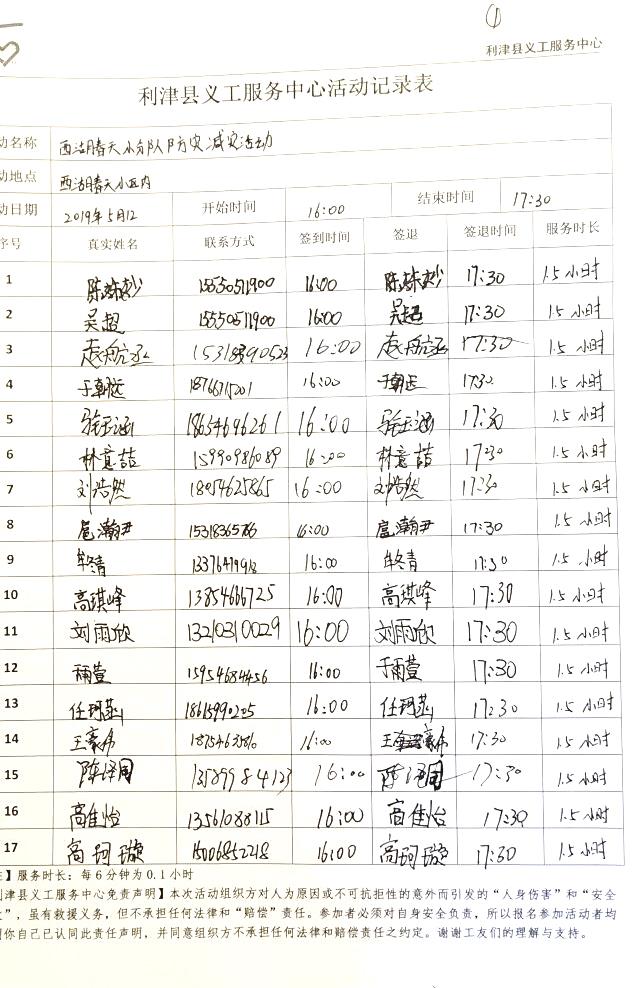 ①
利津县义工服务中心
利津县义工服务中心活动记录表
动名称 西湖春天小分队防灾减灾活动
动地点 西湖春天小区内
动日期 2019年5月12 开始时间 16:00 结束时间 17:30
序号 真实姓名 联系方式 签到时间 签退 签退时间 服务时长
1 16:00 17:30 1.5小时
2 吴超 15550571900 16:00 吴超 17:30 1.5小时
3 16:00 17:30 1.5小时
4 16:00 17:30 1.5小时
5 18654696261 16:00 17:30 1.5小时
6 林意喆 15990986089 16:00 林意喆 17:30 1.5小时
7 刘浩然 18054625865 16:00 刘浩然 17:30 1.5小时
8 扈瀚尹 16:00 扈瀚尹 17:30 1.5小时
9 牟青 16:00 牟青 17:30 1.5小时
10 高琪峰 13854666725 16:00 高琪峰 17:30 1.5小时
11 刘雨欣 13210310029 16:00 刘雨欣 17:30 1.5小时
12 15954684456 16:00 于雨萱 17:30 1.5小时
13 任珂菡 16:00 任珂菡 17:30 1.5小时
14 王豪伟 16:00 17:30 1.5小时
15 16:00 17:30 1.5小时
16 高佳怡 13561088115 16:00 高佳怡 17:30 1.5小时
17 高珂璇 15006852218 16:00 高珂璇 17:30 1.5小时
】服务时长：每6分钟为0.1小时
利津县义工服务中心免责声明】本次活动组织方对人为原因或不可抗拒性的意外而引发的“人身伤害”和“安全
”，虽有救援义务，但不承担任何法律和“赔偿”责任。参加者必须对自身安全负责，所以报名参加活动者均
你自己已认同此责任声明，并同意组织方不承担任何法律和赔偿责任之约定。谢谢工友们的理解与支持。